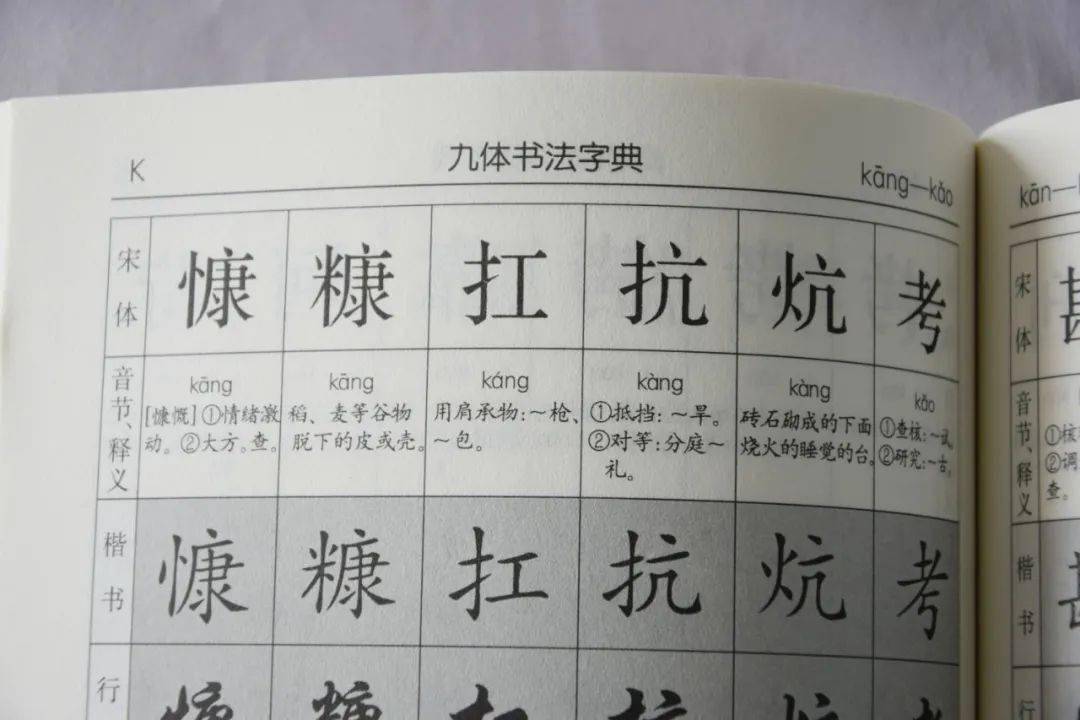 K
九体书法字典
kāng—kǎo
kān—
宋体
慷 糠 扛 抗 炕 考
宋体
音节、释义
kāng
[慷慨]①情绪激
动。②大方。查。
kāng
稻、麦等谷物
脱下的皮或壳。
káng
用肩承物:～枪、
～包。
kàng
①抵挡:～旱。
②对等:分庭～
礼。
kàng
砖石砌成的下面
烧火的睡觉的台。
kǎo
①查核:～试。
②研究:～古。
音节、释义
①核
②调
查。
楷书
慷 糠 扛 抗 炕 考
楷书
行
慷 糠
行